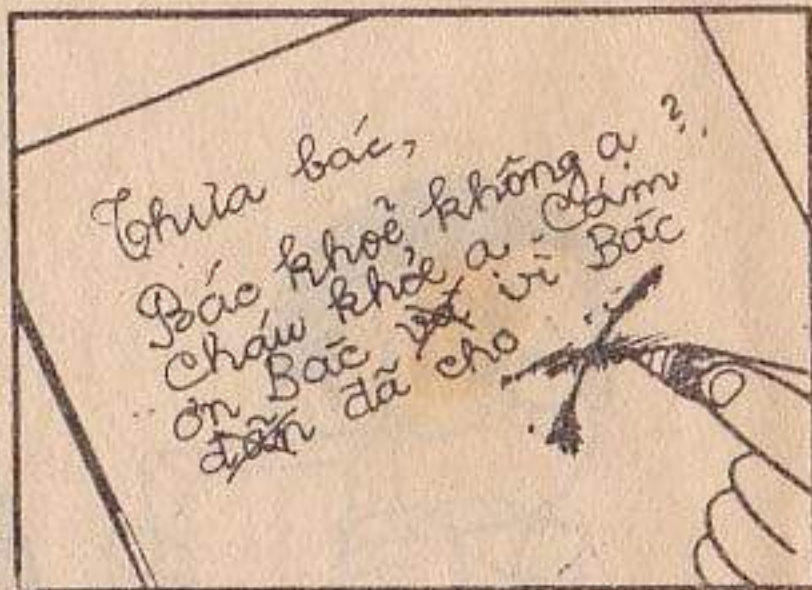 Thưa bác,
Bác khoẻ không a?
Cháu khỏe a. Cám
ơn Bác và vì Bác
dẫn đã cho ...